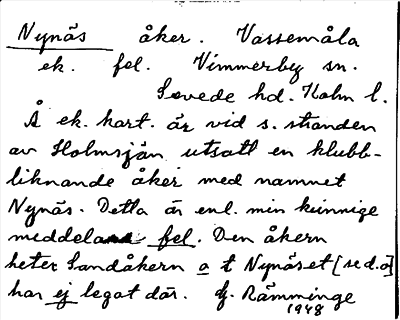 Nynäs åker. Vassemåla
ek. fel. Vimmerby sn.
Sevede hd. Kalm l.
Å ek. kart. är vid s. stranden
av Holmsjön utsatt en klubb-
liknande åker med namnet
Nynäs. Detta är enl. min kunnige
meddelare fel. Den åkern
heter Sandåkern o t Nynäset [se d.o]
har ej legat där. G. Rämminge
1948